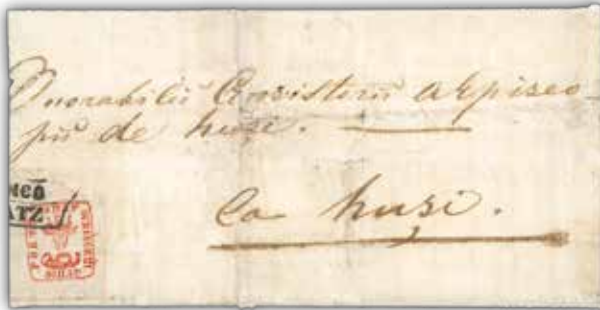 Onorabilii Consistorii a Episco-
pii de husi.
la husi.
NCO
ATZ